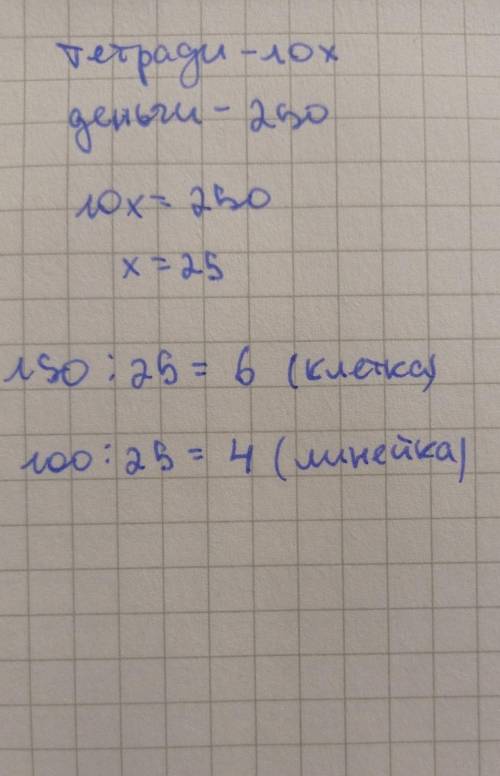 тетради - 10x
деньги - 250
10x = 250
x = 25
150 : 25 = 6 (клетка)
100 : 25 = 4 (линейка)